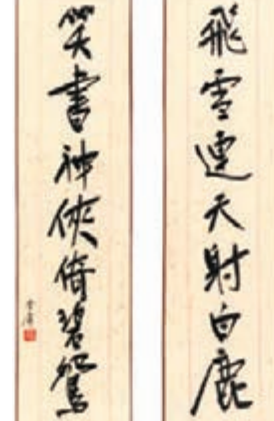 飛雪連天射白鹿
笑書神俠倚碧鴛
金庸